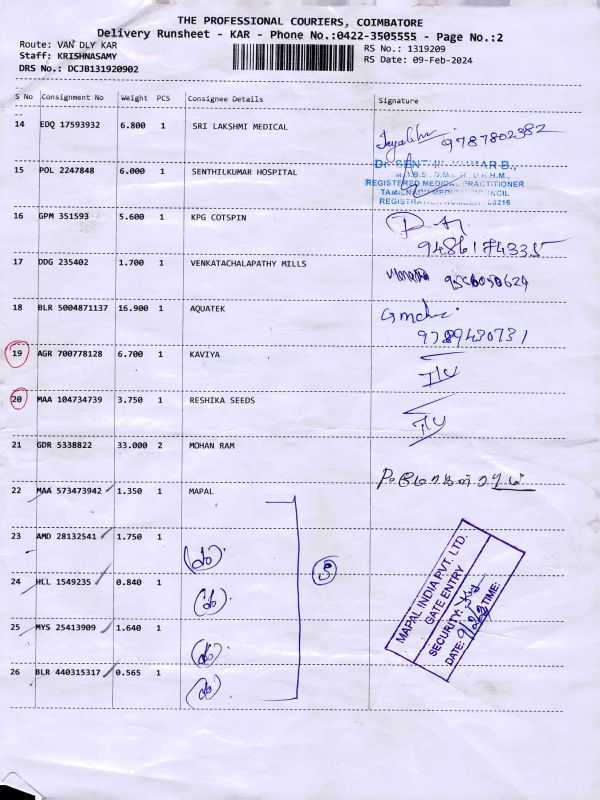 THE PROFESSIONAL COURIERS, COIMBATORE
Delivery Runsheet - KAR - Phone No.:0422-3505555 - Page No.:2
Route: VAN DLY KAR
RS No.: 1319209
Staff: KRISHNASAMY
RS Date: 09-Feb-2024
DRS No.: DCJB131920902
S No Consignment No Weight PCS Consignee Details Signature
14 EDQ 17593932 6.800 1 SRI LAKSHMI MEDICAL
9787802382
15 POL 2247848 6.000 1 SENTHILKUMAR HOSPITAL
Dr. SENTHIL KUMAR B.,
REGISTERED MEDICAL PRACTITIONER
TAMILNADU MEDICAL COUNCIL
REGISTRATION NUMBER
16 GPM 351593 5.600 1 KPG COTSPIN
9486174335
17 DDG 235402 1.700 1 VENKATACHALAPATHY MILLS
18 BLR 5004871137 16.900 1 AQUATEK
9789430731
19 AGR 700778128 6.700 1 KAVIYA
20 MAA 104734739 3.750 1 RESHIKA SEEDS
21 GDR 5338822 33.000 2 MOHAN RAM
22 MAA 573473942 1.350 1 MAPAL
23 AMD 28132541 1.750 1
24 HLL 1549235 0.840 1
25 MYS 25413909 1.640 1
26 BLR 440315317 0.565 1
5
MAPAL INDIA PVT. LTD.
GATE ENTRY
SECURITY:
DATE: 9/2/24 TIME: